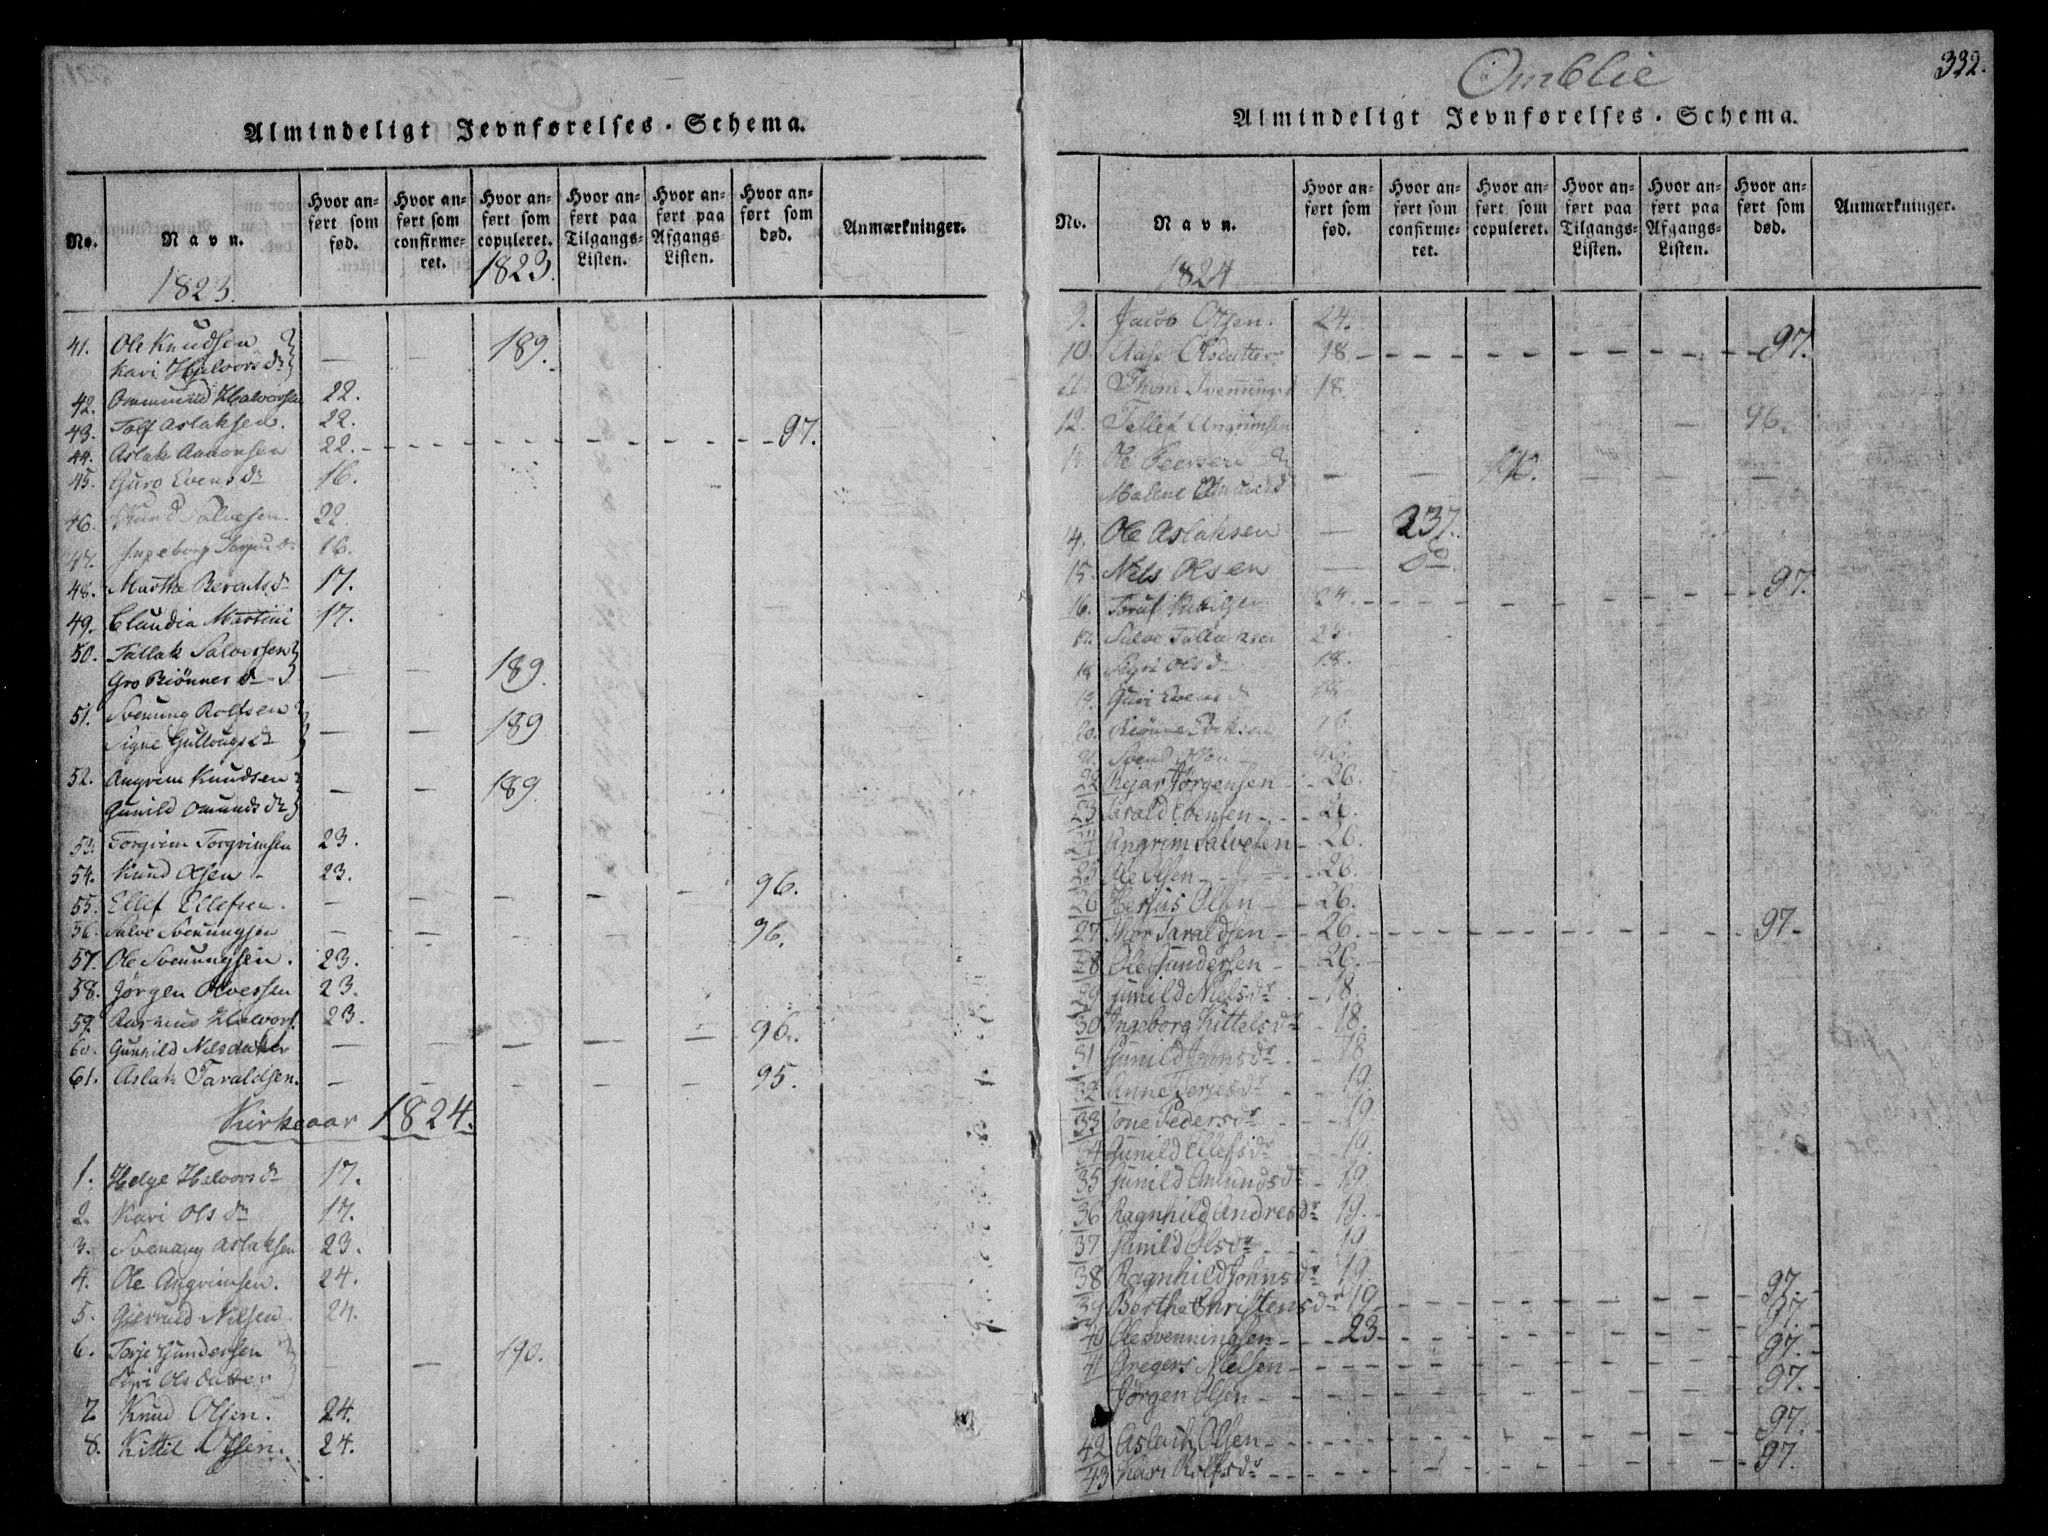 Almindeligt Jevnførelses-Schema.
No.
Navn.
Hvor anført som fød.
Hvor anført som confirmeret.
Hvor anført som copuleret.
Hvor anført paa Tilgangs-Listen.
Hvor anført paa Afgangs-Listen.
Hvor anført som død.
Anmærkninger.
1823. 1823.
41. Ole Knudsen
Kari Halvorsdr — — 189.
42. Ommund Halvorsen 22.
43. Tolf Aslaksen. 22.
44. Aslak Aanonsen 22. - - - - - 97.
45. Guro Evensdr 16.
46. Knud Salvesen. 22.
47. Ingeborg 16.
48. Marthe Berentsdr 17.
49. Claudia Martini 17.
50. Tallak Salvessen
Gro Biønnesdr — — 189.
51. Svenung Rolfsen
Signe Gullougsdr — — 189.
52. Angrim Knudsen
Gunild Omundsdr — — 189.
53. Torgrim Torgrimsen 23.
54. Knud Olsen 23.
55. Ellef Ellefsen. — — — — — 96.
56. Salve Svenungsen — — — — 96.
57. Ole Svenungsen. 23.
58. Jørgen Olvessen 23.
59. Rasmus Halvors. 23.
60. Gunhild Nilsdatter — — — — — 96.
61. Aslak Taraldsen. — — — — — 95.
Kirkeaar 1824.
1. Helge Halvorsdr 17.
2. Kari Olsdr 17.
3. Svenung Aslaksen 23.
4. Ole Angrimsen. 24.
5. Gierruld Nilsen 24.
6. Torje Gundersen
Siri Olsdatter — — 190.
7 Knud Olsen. 24.
8. Kittil Olsen. 24.
Omblie
332.
Almindeligt Jevnførelses-Schema.
No.
Navn.
Hvor anført som fød.
Hvor anført som confirmeret.
Hvor anført som copuleret.
Hvor anført paa Tilgangs-Listen.
Hvor anført paa Afgangs-Listen.
Hvor anført som død.
Anmærkninger.
1824
9. Jacob Olsen. 24.
10. Aase Olsdatter 18 - - - - - 97.
Thom 18.
12. Tellef Angrimsen 96.
Ole Peersen
Malene — — 190. — — —
4. Ole Aslaksen — 237.
15. Nils Olsen — do
16. Kittilsen 24. - - - - - 97.
17. Salve Tallaksen 25.
18 Sigri Olsdr 18.
19. Guri Evensdr 18.
20. Biønne 26.
21. Svend 26.
22 Reiar Jørgensen - 26.
23 Tarald Evensen - 26.
24 Angrim Salvesen - 26.
25 Ole Olsen - 26.
26 Herjus Olsen - 26.
27 Thor Taraldsen - 26. - - - - - 97.
28 Ole Gundersen - 26.
29 Gunild Nielsdr - 18.
30 Ingeborg Kittelsdr - 18.
31 Gunild Johnsdr - 18
32 Anne Terjesdr - 19.
33 Tone Pedersdr - 19
34 Gunild Ellefsdr - 19.
35 Gunild Amundsdr - 19.
36 Ragnhild Andresdr 19.
37 Gunild Olsdr 19
38 Ragnhild Johnsdr 19.
39 Berthe Christensdr 19. - - - - - 97.
40 Ole Svenningsen - 23 - - - - - 97.
41 Gregers Nielsen - - - - - - 97.
Jørgen Olsen - - - - - - 97.
42 Aslach Olsen - - - - - - 97.
43 Kari Rolfsdr - - - - - - 97.